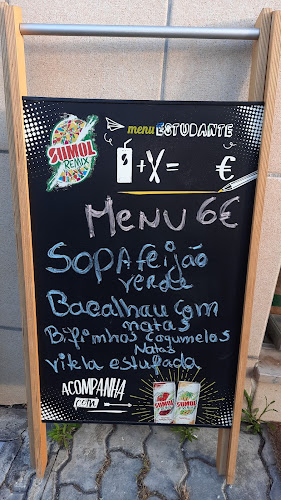 SUMOL
REMIX
menu ESTUDANTE
S + X = €
MENU 6€
SOPA feijão
verde
Bacalhau com
natas
Bifinhos cogumelos
Natas
vitela estufada
ACOMPANHA
COM
SUMOL SUMOL